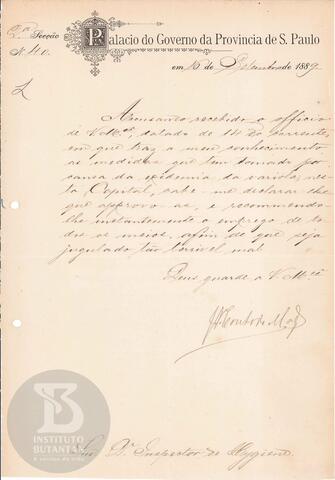 2ª Secção
N. 40
Palacio do Governo da Provincia de S. Paulo
em 16 de Setembro de 1889
Accusando recebido o officio
de V. Mcê, datado de 14 do corrente,
em que traz a meu conhecimento
as medidas que tem tomado por
causa da epidemia da variola, nes-
ta Capital, cabe-me declarar-lhe
que approvo-as, e recommendo-
lhe instantemente o emprego de to-
dos os meios, afim de que seja
jugulado tão terrivel mal
Deus guarde a V. Mcê
Snr. Dr. Inspector de Hygiene.
INSTITUTO
BUTANTAN
A serviço da vida